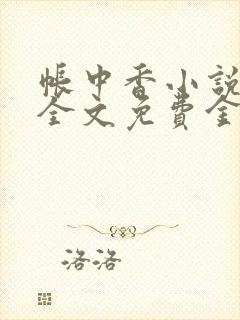 帳中香小說
全文免費全
洛洛